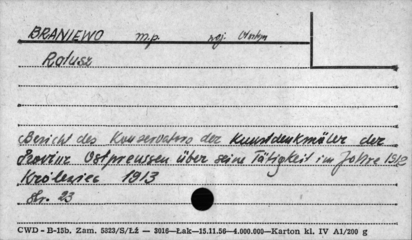 BRANIEWO m.p. woj. Olsztyn
Ratusz
Bericht des Konservators der Kunstdenkmäler der
Provinz Ostpreussen über seine Tätigkeit im Jahre 1912
Królewiec 1913
Str. 23
CWD - B-15b. Zam. 5823/S/Łź — 3016—Łak—15.11.56—4.000.000—Karton kl. IV A1/200 g